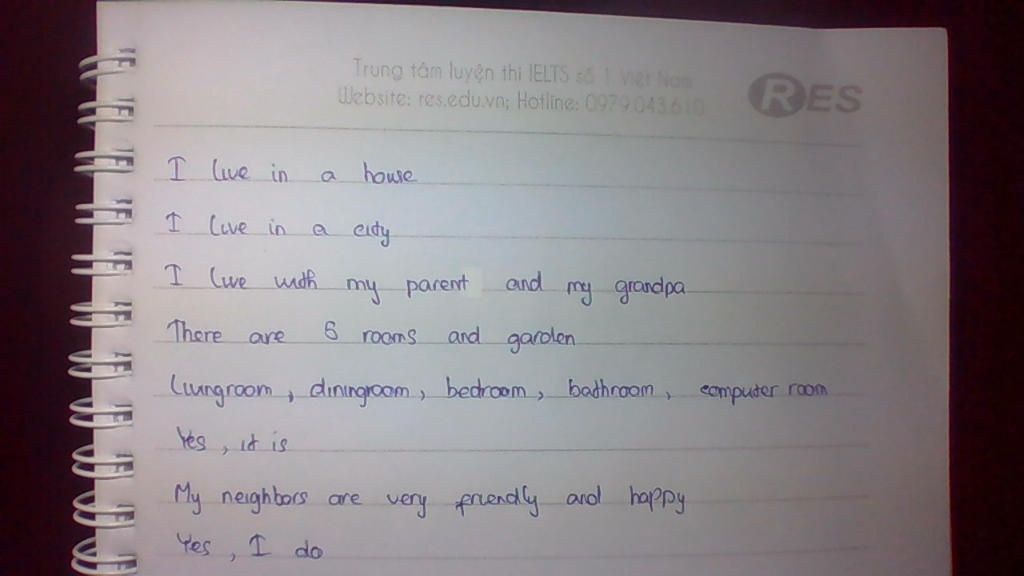 Trung tâm luyện thi IELTS số 1 Việt Nam
Website: res.edu.vn; Hotline: 0979.043.610
RES
I live in a house
I live in a city
I live with my parent and my grandpa
There are 6 rooms and garden
Livingroom, diningroom, bedroom, bathroom, computer room
Yes, it is
My neighbors are very friendly and happy
Yes, I do